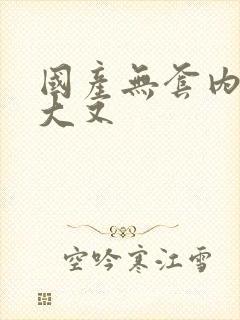 國產無套內
大叉
空吟寒江雪